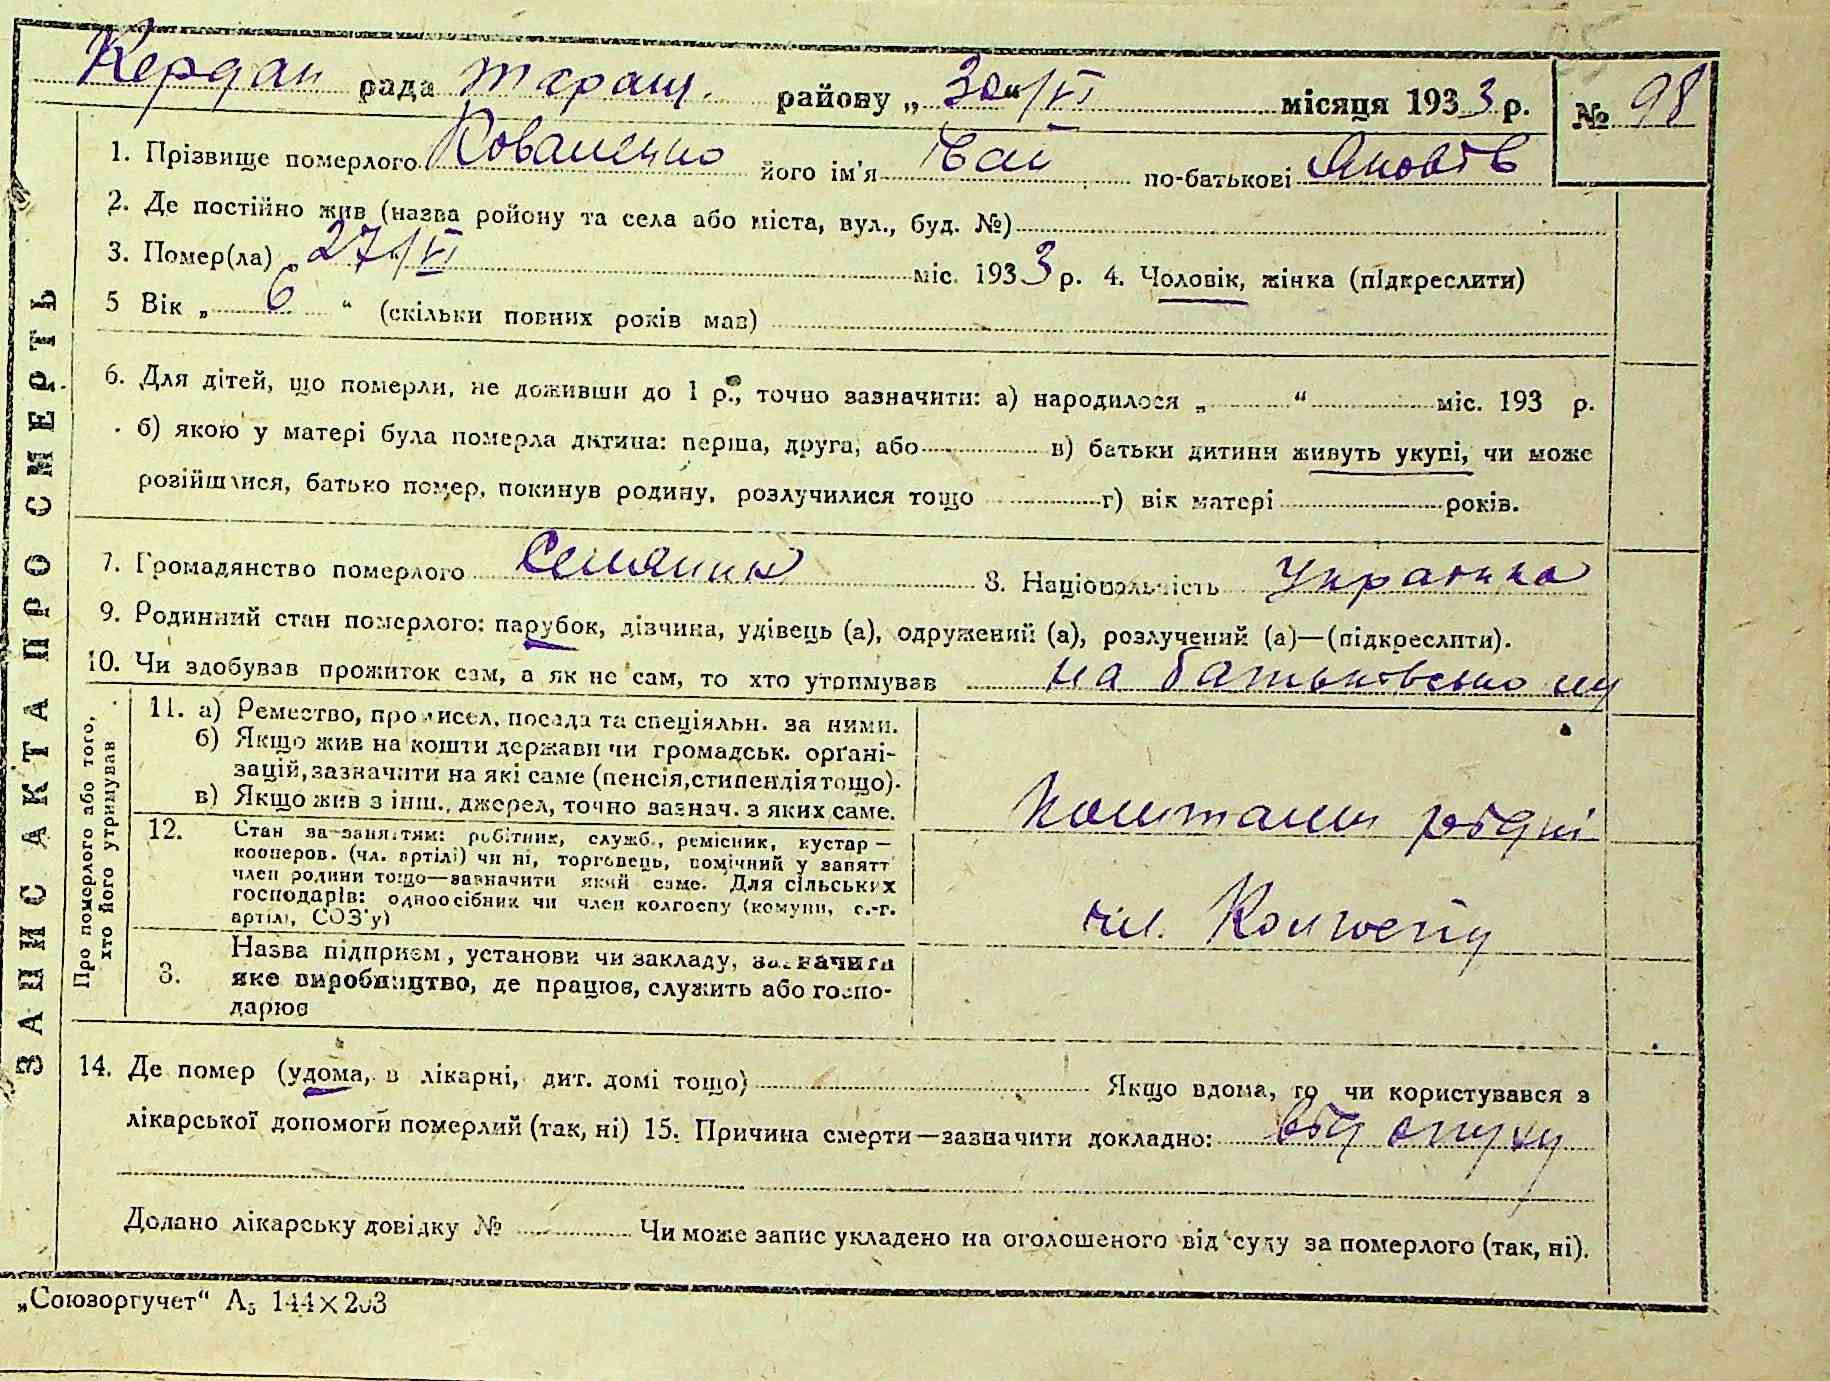 Кердан рада Таращ. району „30“/VI місяця 1933 р. № 98
1. Прізвище померлого Коваленко його ім'я по-батькові Яковів
2. Де постійно жив (назва ройону та села або міста, вул., буд. №)
3. Помер(ла) „27“/VI міс. 1933 р. 4. Чоловік, жінка (підкреслити)
5 Вік „ 6 “ (скільки повних років мав)
6. Для дітей, що померли, не доживши до 1 р., точно зазначити: а) народилося „ “ міс. 193 р.
б) якою у матері була померла дитина: перша, друга, або в) батьки дитини живуть укупі, чи може
розійшлися, батько помер, покинув родину, розлучилися тощо г) вік матері років.
7. Громадянство померлого Селянин 8. Національність Українка
9. Родинний стан померлого: парубок, дівчина, удівець (а), одружений (а), розлучений (а)—(підкреслити).
10. Чи здобував прожиток сам, а як не сам, то хто утримував на батьковському
11. а) Ремество, промисел, посада та спеціяльн. за ними.
б) Якщо жив на кошти держави чи громадськ. орґані-
зацій, зазначити на які саме (пенсія, стипендія тощо).
в) Якщо жив з інш., джерел, точно зазнач. з яких саме.
коштами рідні
12. Стан за заняттям: робітник, служб., ремісник, кустар —
кооперов. (чл. артілі) чи ні, торговець, помічний у занятт
член родини тощо—зазначити який саме. Для сільських
господарів: одноосібник чи член колгоспу (комуни, с.-г.
артілі, СОЗ'у)
чл. Колгоспу
3. Назва підприєм, установи чи закладу, зазначити
яке виробництво, де працює, служить або госпо-
дарює
14. Де помер (удома, в лікарні, дит. домі тощо) Якщо вдома, то чи користувався з
лікарської допомоги померлий (так, ні) 15. Причина смерти—зазначити докладно: від опуху
Додано лікарську довідку № Чи може запис укладено на оголошеного від суду за померлого (так, ні).
„Союзоргучет“ А5 144×203
ЗАПИС АКТА ПРО СМЕРТЬ
Про померлого або того,
хто його утримував